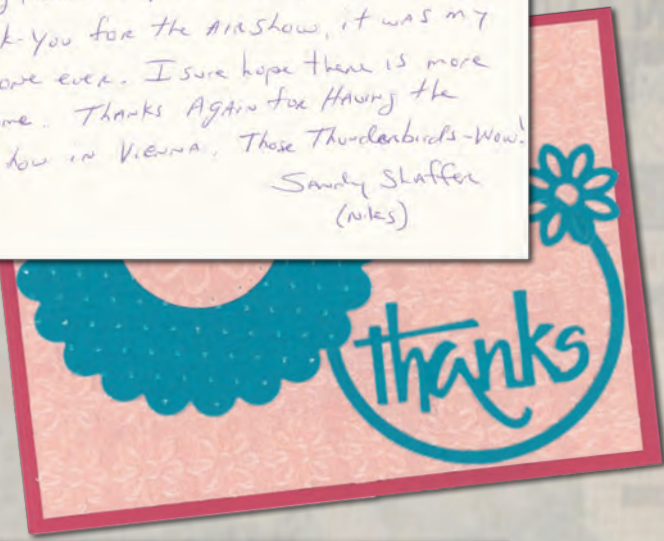 k-You for the Airshow, it was my
one ever. I sure hope there is more
me. Thanks Again for Having the
how in Vienna. Those Thunderbirds-Wow!
Sandy Shaffer
(Niles)
thanks